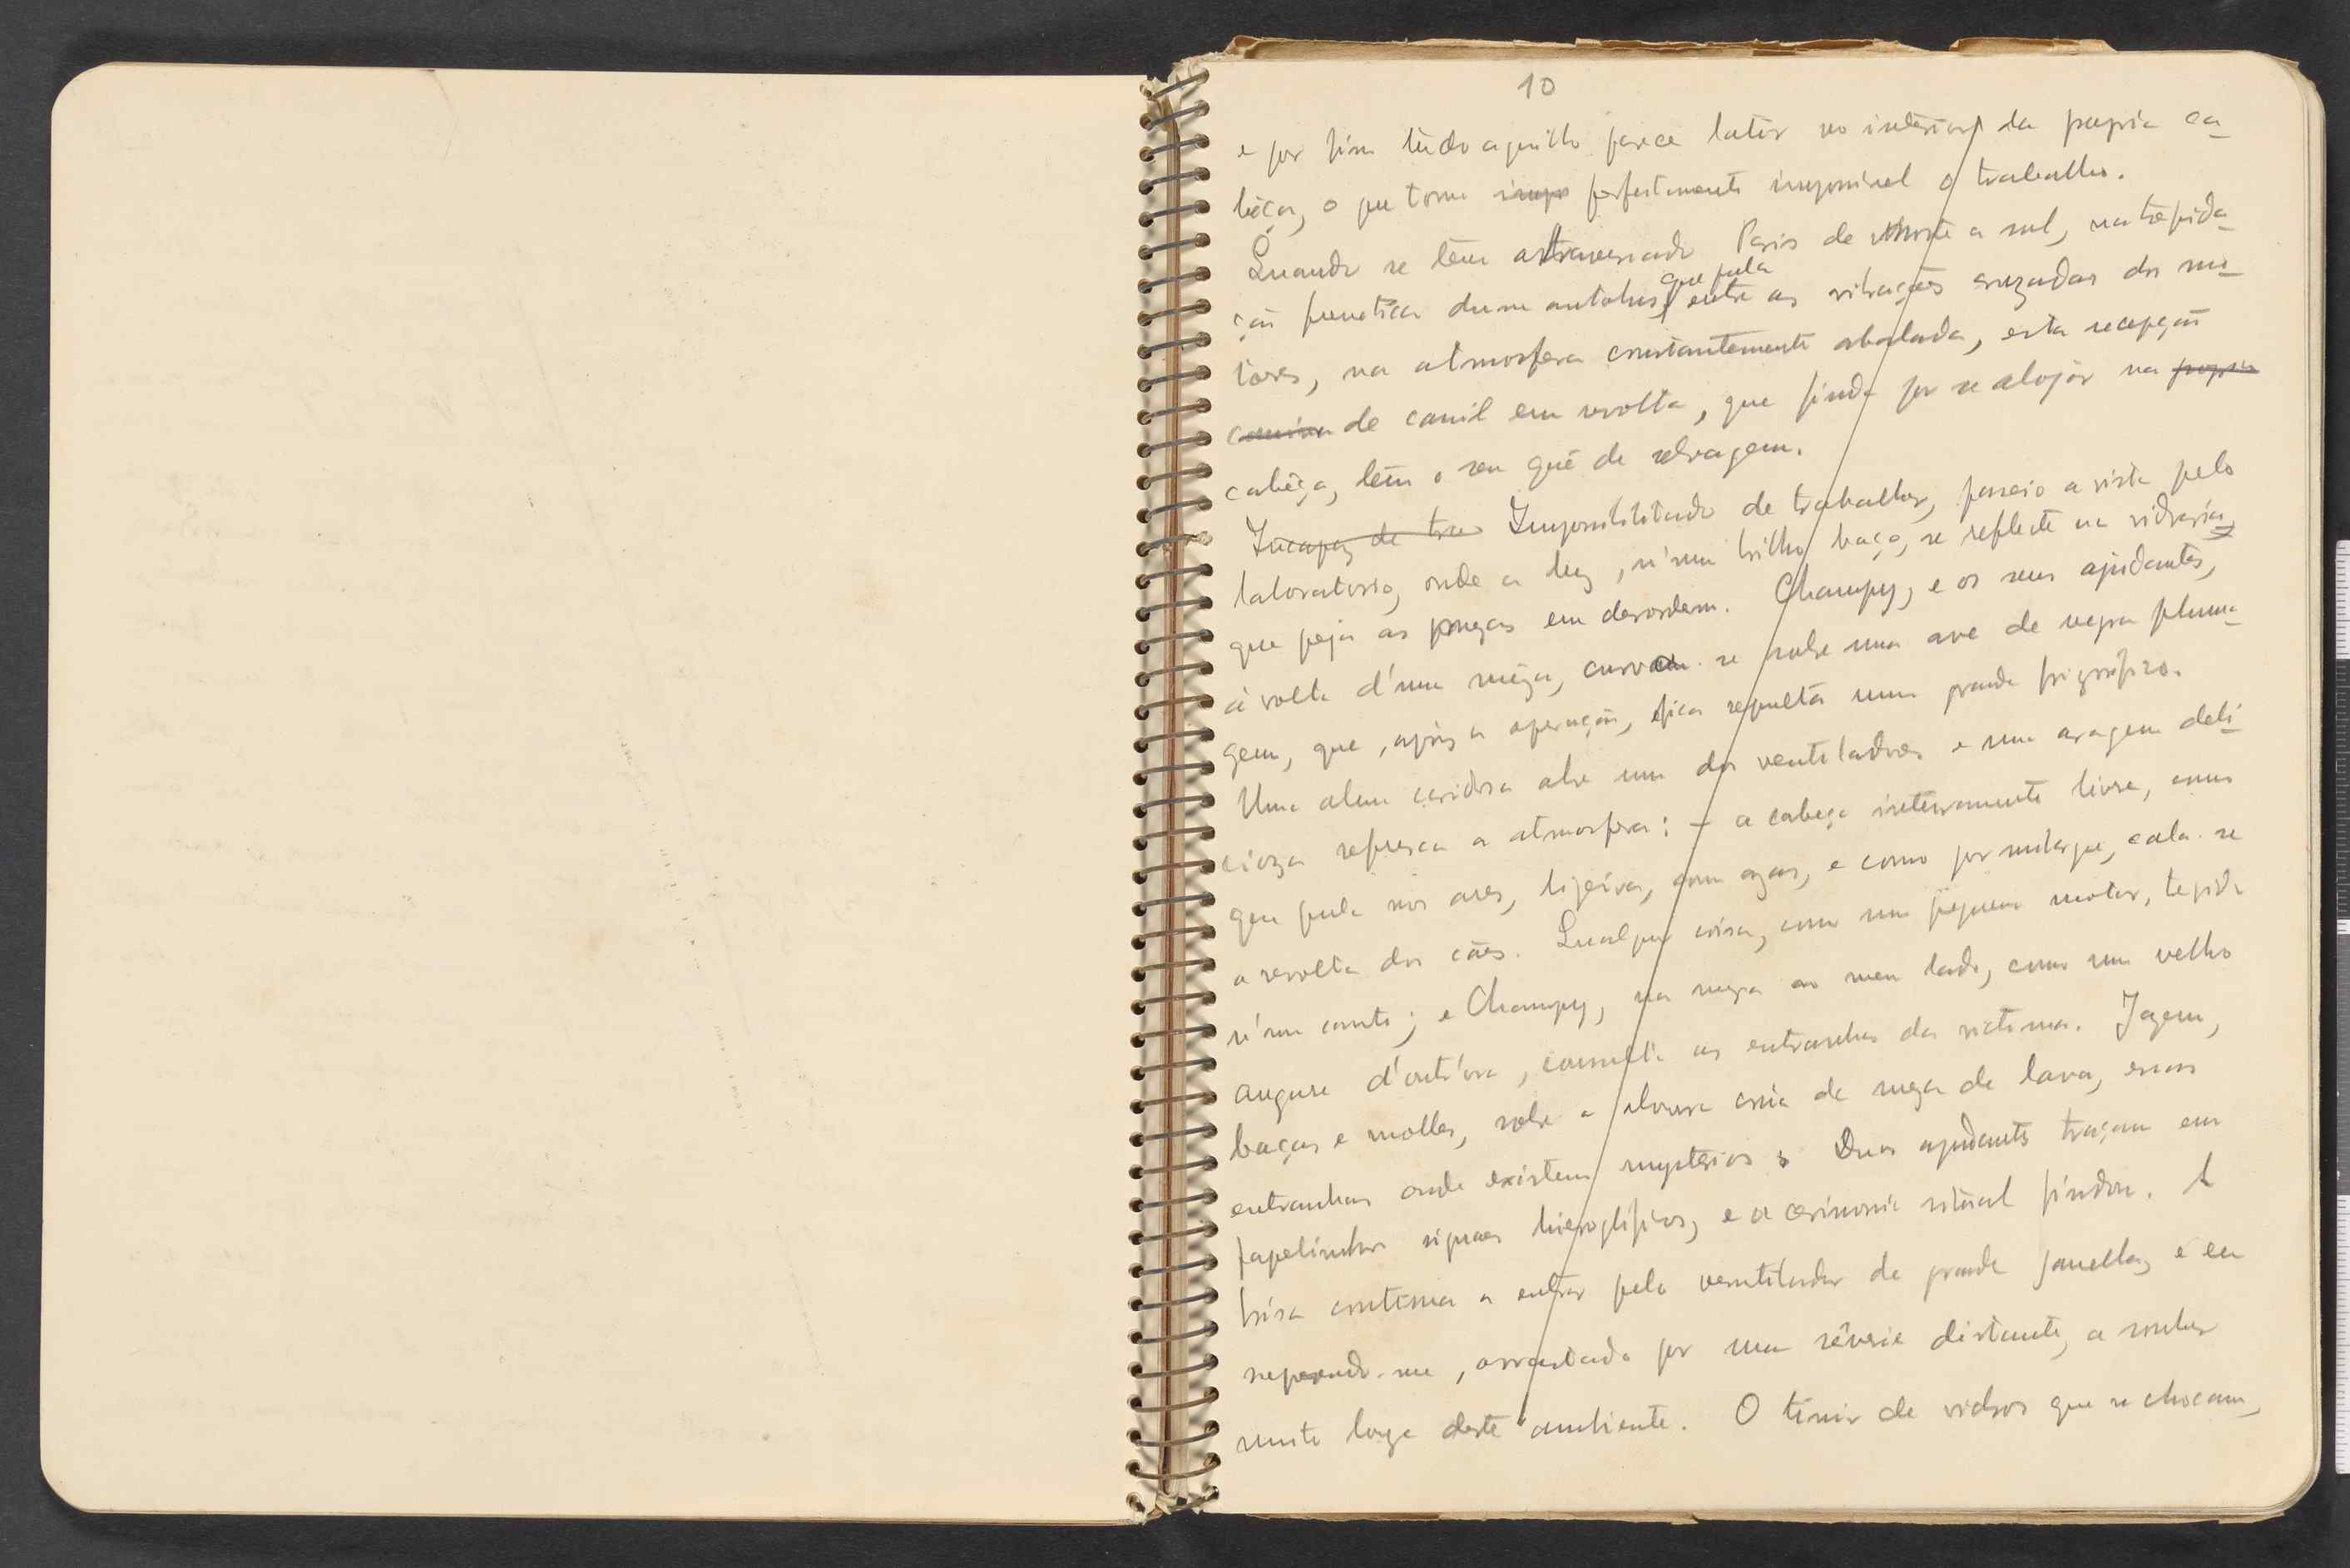 10
e por fim tudo aquillo parece latir no interior da propria ca-
bêça, o que torna impo perfeitamente impossivel o trabalho.
Quando se têm atravessado Paris de Norte a sul, na trepida-
ção frenetica dum autobus, que pula entre as vibrações cruzadas dos mo-
tores, na atmosfera constantemente abalada, esta recepção
canina de canil em revolta, que finda por se alojar na propria
cabêça, têm o seu quê de selvagem.
Incapaz de tra Impossibilitado de trabalhar, passeio a vista pelo
laboratorio, onde a luz, n'um brilho baço, se reflecte na vidraria,
que peja as mezas em desordem. Champy, e os seus ajudantes,
á volta d'uma mêza, curvam-se sobre uma ave de negra pluma-
gem, que, após a operação, fica sepulta num grande frigorifico.
Uma alma caridosa abre um dos ventiladores e uma aragem deli-
cioza refresca a atmosfera: - a cabeça inteiramente livre, como
que pula nos ares, ligeira, com azas, e como por milagre, cala-se
a revolta dos cães. Qualquer coisa, como um pequeno motor, trepida
n'um canto; e Champy, na meza ao meu lado, como um velho
augure d'outr'ora, consulta as entranhas da victima. Jazem,
baças e molles, sobre a alvura da meza de lava, essas
entranhas onde existem mysterios; Duas ajudants traçam em
papelinhos signaes hieroglificos, e a cerimonia ritual findou. A
brisa continua a entrar pelo ventilador da grande janella, e eu
surpreendo-me, arrastado por uma rêverie distante, a sonhar
muito longe deste ambiente. O tinir de vidros que se chocam,